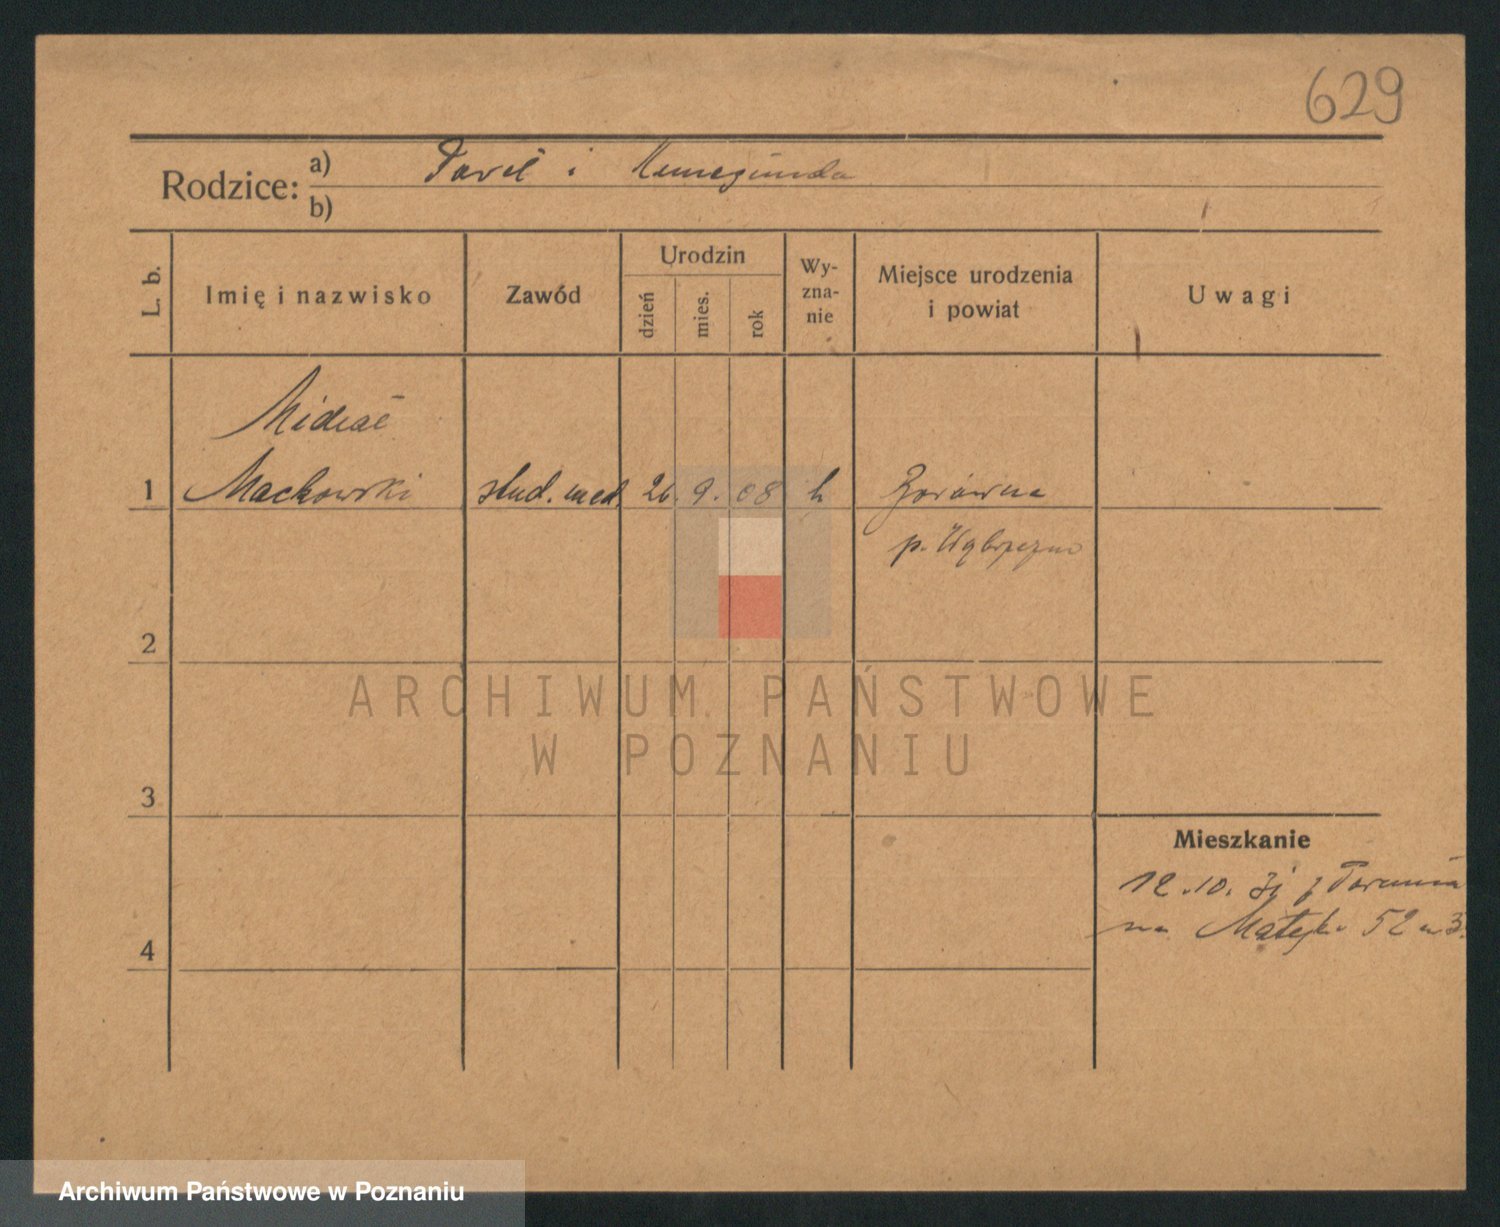 629
Rodzice: a) Paweł i Kunegunda
b)
L. b. Imię i nazwisko Zawód Urodzin dzień mies. rok Wy-zna-nie Miejsce urodzenia i powiat Uwagi
Michał
1 Maćkowski stud. med. 26. 9. 08
p. Wąbrzeźno
2
ARCHIWUM PAŃSTWOWE
W POZNANIU
3
Mieszkanie
12.10. 31 z Torunia
na Matejki 52 m 3.
4
Archiwum Państwowe w Poznaniu